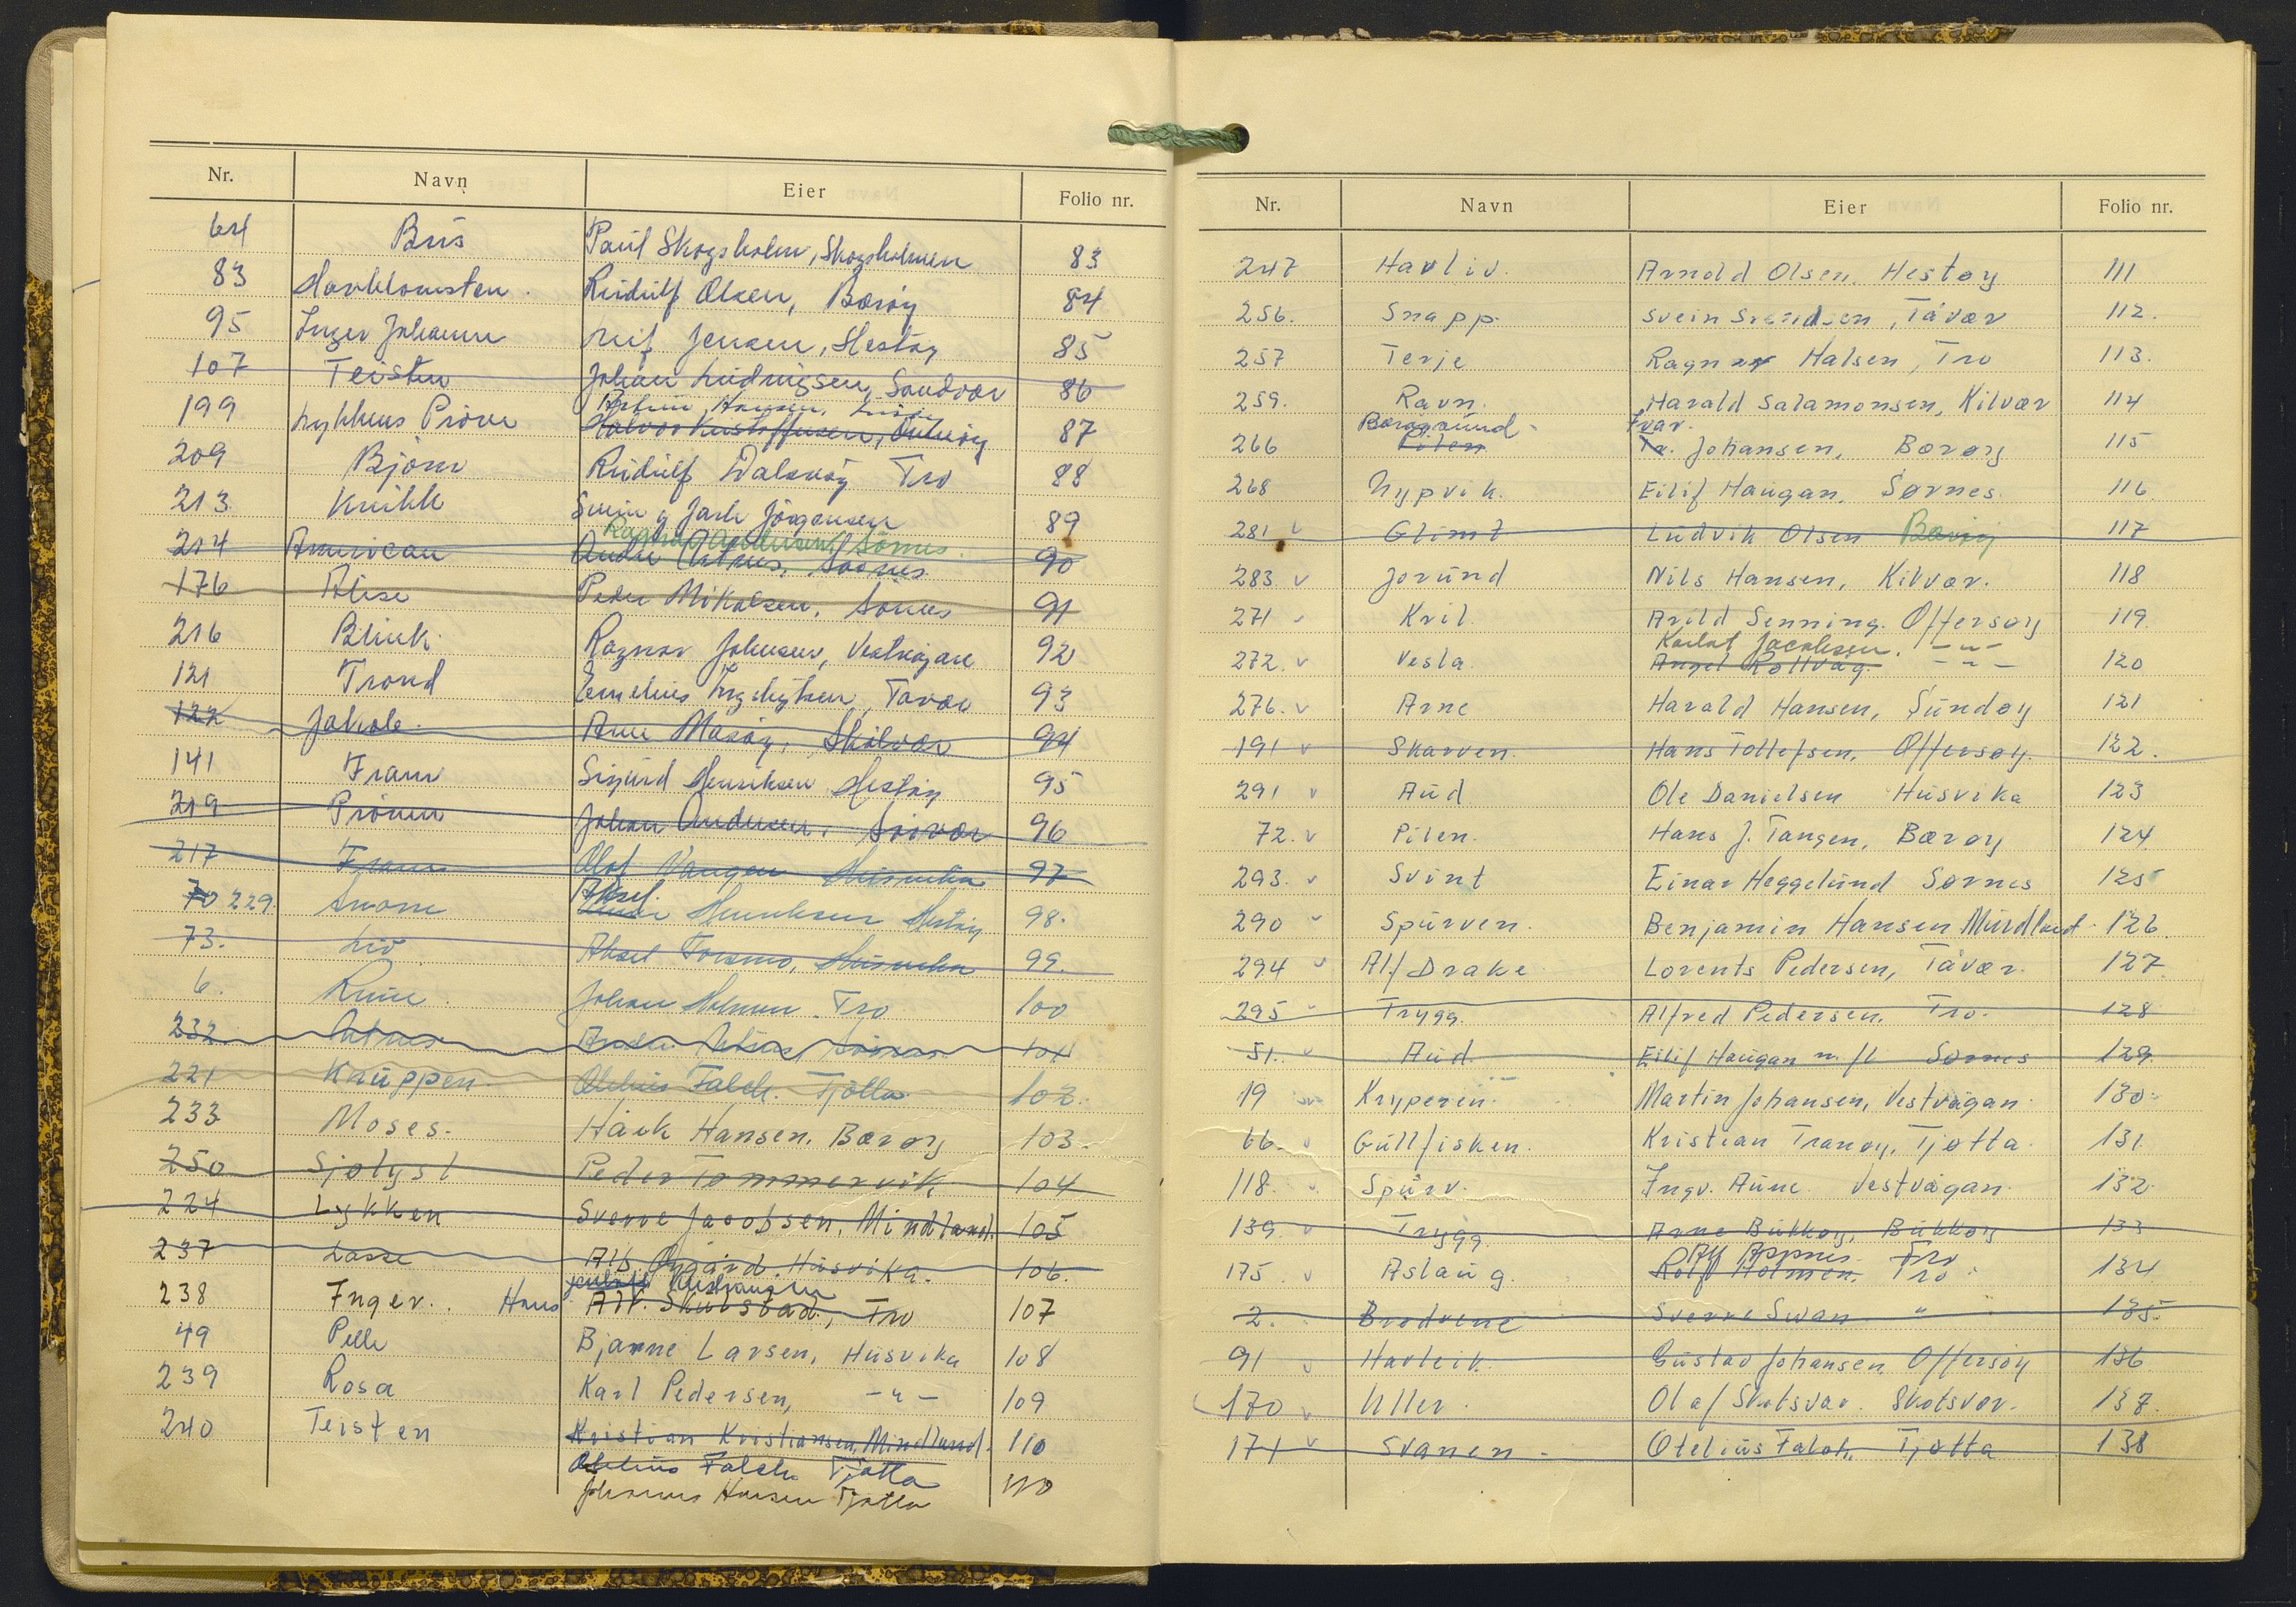 Nr. Navn Eier Folio nr.
64 Brus Paul Skogsholm, Skogsholmen 83
83 Havblomsten. Rudulf Olsen, Borøy 84
95 Inger Johanne Leif Jensen, Hestøy 85
107 Teisten Johan Ludvigsen, Sandvær 86
Hansen,
199 Lykkens Prøve Halvor Kristoffersen, 87
209 Bjørn Rudulf Dalsvåg Tro 88
213 Knikk Svein og Jarle Jørgensen 89
Ragnar Andersen, Sørnes.
214 American 90
176 Alise Peder Mikalsen, Sørnes 91
216 Blink. Ragnar Johansen, Vestvågan 92
121 Trond Cornelius Ingebrigtsen, Tåvær 93
122 Jakob. Arne Masøy, Skålvær 94
141 Fram Sigurd Henriksen Hestøy 95
219 Prøven Johan Andersen. 96
217 Fram Olaf Vangen Husvika 97
Aksel.
70 229 Snorre Henriksen Hestøy 98.
73. Liv Aksel Forsmo, Husvika 99.
6. Rune. Johan Holmen. Tro 100
232. 101
221 Knuppen Otelius Falch. Tjøtta 102.
233 Moses. Håck Hansen. Borøy 103.
250 Sjølyst Peder Tømmervik 104
224 Lykken Sverre Jacobsen, Mindland. 105
237 Lasse Alb. Øygård. Husvika. 106.
238 Inger. Hans Alf. Skulstad, Tro 107
49 Pelle Bjarne Larsen, Husvika 108
239 Rosa Karl Pedersen, -"- 109
240 Teisten Kristian Kristiansen, Mindland. 110
Otelius Falch Tjøtta
Johannes Hansen Tjøtta 110
Nr. Navn Eier Folio nr.
247 Havliv. Arnold Olsen. Hestøy 111
256. Snapp. Svein Svendsen, Tåvær 112.
257 Terje Ragnar Halsen, Tro 113.
259. Ravn. Harald Salamonsen, Kilvær 114
Borgsund Ivar.
266 Pilen Johansen, Borøy 115
268 Nypvik. Eilif Haugan. Sørnes. 116
281 v Glimt Ludvik Olsen Borøy 117
283. v Jorund Nils Hansen, Kilvær. 118
271 v Kril. Arild Senning. Offersøy 119.
Karlot Jacobsen. -"-
272. v Vesla. Angel Rottvåg. -"- 120
276. v Arne Harald Hansen, Sundøy 121
191 v Skarven. Hans Tollefsen, Offersøy. 122.
291 v Aud Ole Danielsen Husvika 123
72. v Pilen. Hans J. Tangen, Borøy 124
293. v Svint Einar Heggelund Sørnes 125
290 v Spurven. Benjamin Hansen Mindland. 126
294 v Alf Drake Lorents Pedersen, Tåvær. 127
295 v Trygg. Alfred Pedersen. Tro. 128
51. v Aud. Eilif Haugan m. fl Sørnes 129.
19 v Kryperen. Martin Johansen, Vestvågan. 130.
66. v Gullfisken. Kristian Tranøy, Tjøtta. 131
118. v Spurv. Ingv. Aune Vestvågan. 132.
139. v Trygg. Arne Bukkøy, Bukkøy 133
Tro
175. v Aslaug. Rolf Holmen. Tro. 134
2. Brødrene Sverre Svan " 135.
91 v Havleik. Gustav Johansen. Offersøy 136
170 v Uller. Olaf Skotsvær. Skotsvær. 137.
171 v Svanen - Otelius Falch, Tjøtta 138